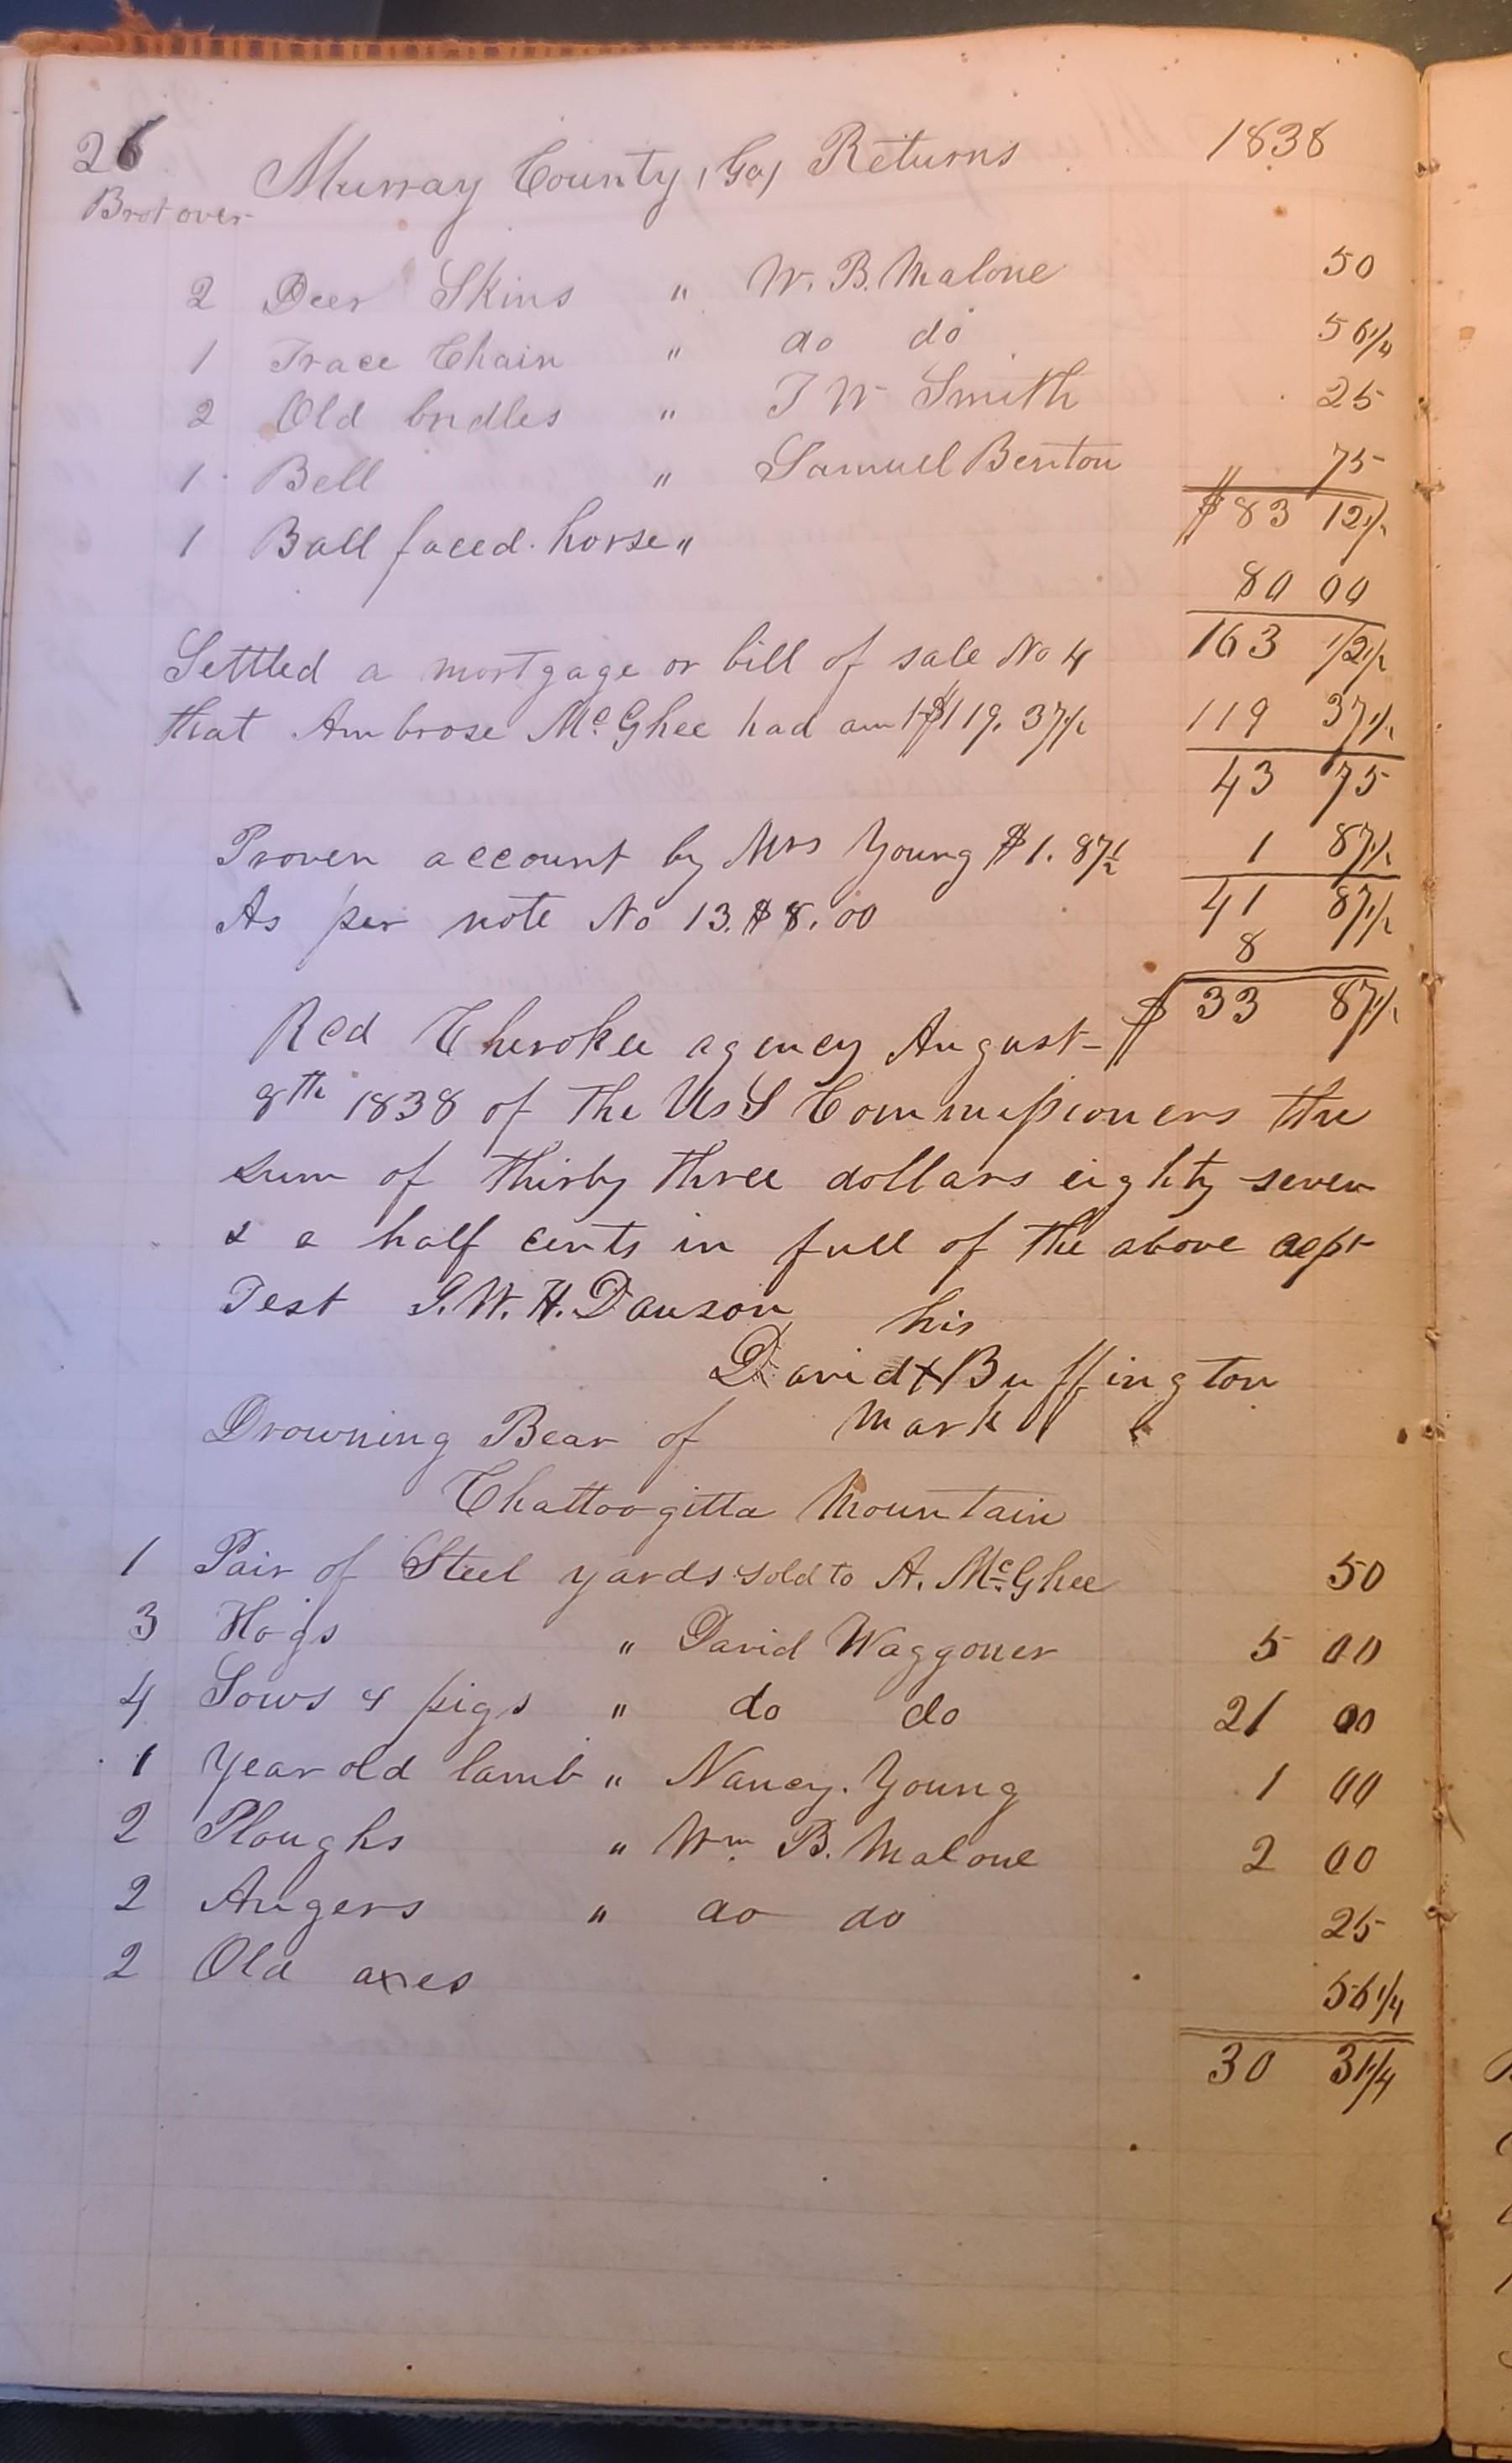 26 Murray County, (Ga) Returns 1838
Brot over
2 Deer Skins " W. B. Malone 50
1 Trace Chain " do do 56 1/4
2 Old bridles " T W Smith 25
1 Bell " Samuel Benton 75
$83 12 1/2
1 Ball faced horse "
80 00
163 12 1/2
Settled a mortgage or bill of sale No 4
that Ambrose McGhee had amt $119. 37 1/2 119 37 1/2
43 75
Proven account by Mrs Young $1. 87 1/2 1 87 1/2
41 87 1/2
As per note No 13. $8.00 8
$33 87 1/2
Red Cherokee agency August
8th 1838 of the U S Commissioners the
sum of thirty three dollars eighty seven
& a half cents in full of the above
Test S. W. H. Dawson his
David X Buffington
mark
Drowning Bear of
Chattoogitta Mountain
1 Pair of Steel yards sold to A. McGhee 50
3 Hogs " David Waggoner 5 00
4 Sows & pigs " do do 21 00
1 Year old lamb " Nancy. Young 1 00
2 Ploughs " Wm B. Malone 2 00
2 Augers " do do 25
2 Old axes 56 1/4
30 31 1/4